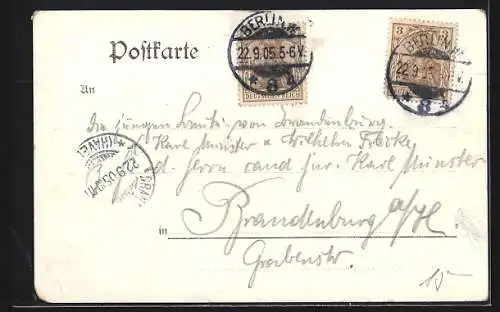 Postkarte
BERLIN
22.9.05.5-6V.
* 8 d
3
3
DEUTSCHES REICH
22.9.
* 8
An
die jungen Leute von Brandenburg.
Karl Münster u Wilhelm
d. Herrn cand jur. Karl Münster
BRAN
22.9.05
(HAVEL)
in Brandenburg a/H.
Grabenstr.
15